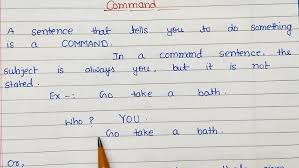 Command
A sentence that tells you to do something
is a COMMAND.
In a command sentence, the
subject is always you, but it is not
stated.
Ex -: Go take a bath.
Who? YOU.
Go take a bath.
Or,